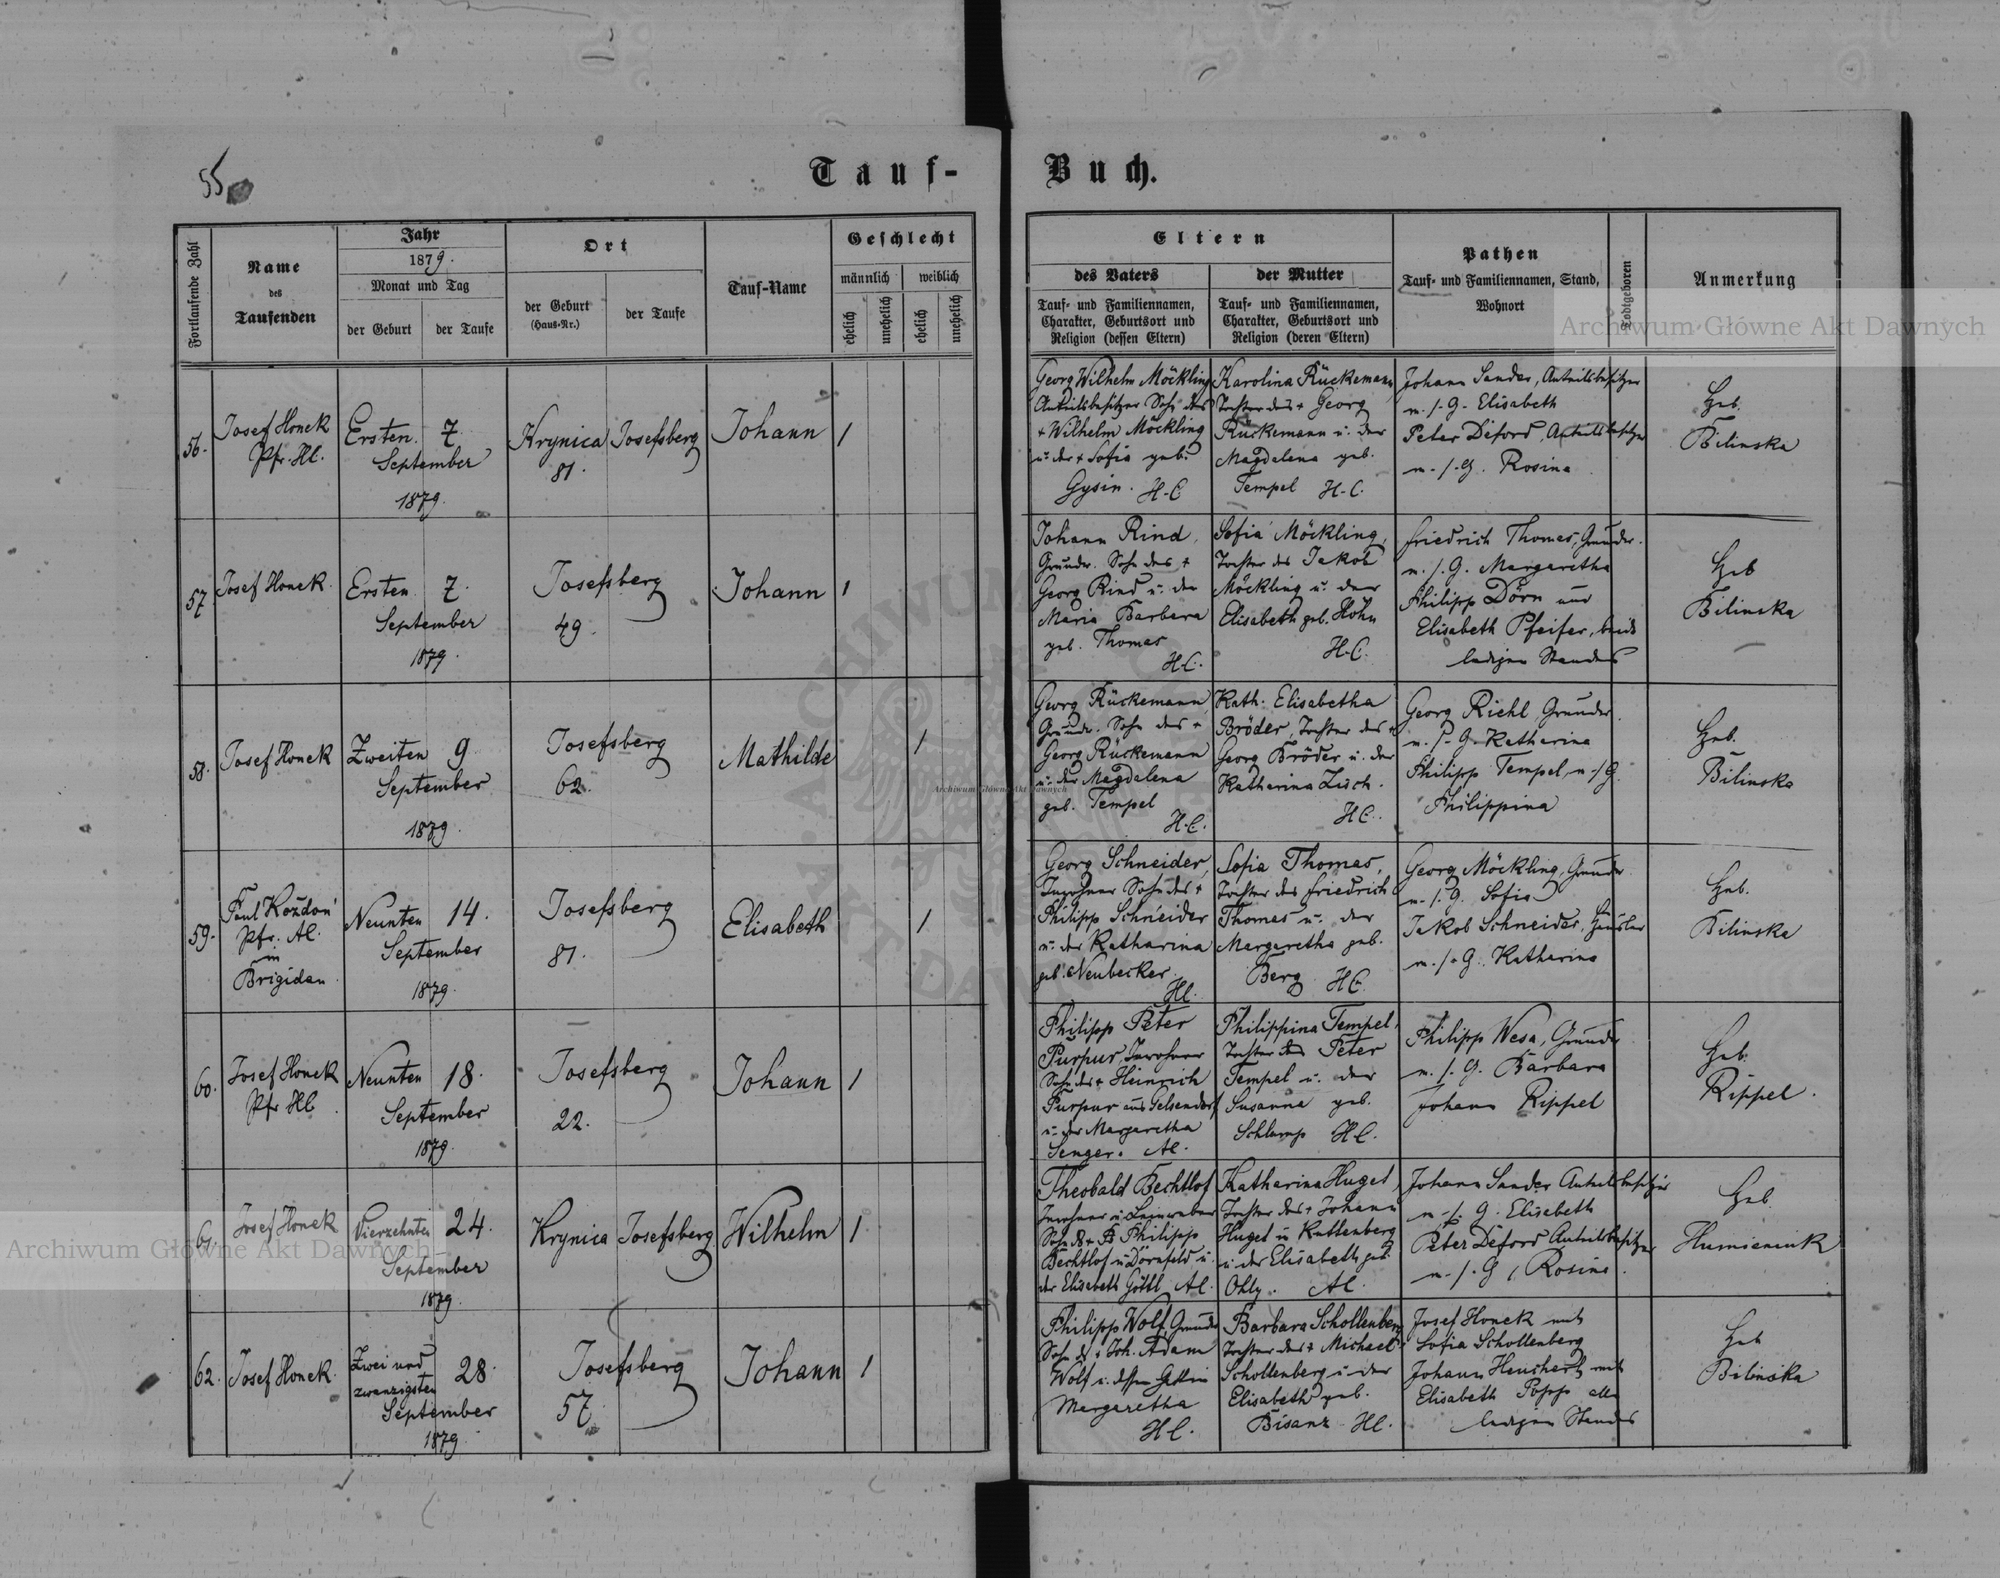 55
Tauf-Buch.
Fortlaufende Zahl
Name
des
Taufenden
Jahr
1879.
Monat und Tag
der Geburt
der Taufe
Ort
der Geburt
(Haus-Nr.)
der Taufe
Tauf-Name
Geschlecht
männlich
weiblich
ehelich
unehelich
ehelich
unehelich
Eltern
des Vaters
Tauf- und Familiennamen,
Charakter, Geburtsort und
Religion (dessen Eltern)
der Mutter
Tauf- und Familiennamen,
Charakter, Geburtsort und
Religion (deren Eltern)
Pathen
Tauf- und Familiennamen, Stand,
Wohnort
Todtgeboren
Anmerkung
Archiwum Główne Akt Dawnych
56.
Josef Honek
Pfr. Hl.
Ersten
September
1879.
7.
Krynica
81.
Josefsberg
Johann
1
Georg Wilhelm Möckling
Anteilsbesitzer Sohn des
+ Wilhelm Möckling
u. der + Sofia geb.
Gysin. H.C
Karolina Rückemann
Tochter des + Georg
Rückemann u. der
Magdalena geb.
Tempel H.C.
Johann Sander, Anteilsbesitzer
m. s. G. Elisabeth
Peter Déford, Anteilsbesitzer
m. s. G. Rosina
Heb.
Bilinska
57.
Josef Honek.
Ersten
September
1879.
7.
Josefsberg
49.
Johann
1
Johann Rind,
Grundw. Sohn des +
Georg Rind u. der
Maria Barbara
geb. Thomas
H.C.
Sofia Möckling,
Tochter des Jakob
Möckling u. der
Elisabeth geb. Hohn
H.C.
Friedrich Thomas, Grundw.
m. s. G. Margaretha
Philipp Dörn und
Elisabeth Pfeifer, beide
ledigen Standes
Heb
Bilinska
58.
Josef Honek
Zweiten
September
1879.
9.
Josefsberg
62.
Mathilde
1
Georg Rückemann
Grundw. Sohn des +
Georg Rückemann
u. der Magdalena
geb. Tempel
H.C.
Kath. Elisabetha
Bröder, Tochter des +
Georg Bröder u. der
Katharina Zisch.
H.C.
Georg Riehl, Grundw.
m. s. G. Katharina
Philipp Tempel, m. s. G.
Philippina
Heb.
Bilinska
Archiwum Główne Akt Dawnych
59.
Paul Kozdon
Pfr. Al.
in
Brigidau
Neunten
September
1879.
14.
Josefsberg
81.
Elisabeth
1
Georg Schneider,
Inwohner Sohn des +
Philipp Schneider
u. der Katharina
geb. Neubecker.
Hl.
Sofia Thomas,
Tochter des Friedrich
Thomas u. der
Margaretha geb.
Berg H.C.
Georg Möckling, Grundw.
m. s. G. Sofia
Jakob Schneider, Häusler
m. s. G. Katharina
Heb.
Bilinska
60.
Josef Honek
Pfr Hl.
Neunten
September
1879.
18.
Josefsberg
22.
Johann
1
Philipp Peter
Purpur, Inwohner
Sohn des + Heinrich
Purpur aus Gelsendorf
u. der Margaretha
Senger. Al.
Philippina Tempel,
Tochter des Peter
Tempel u. der
Susanna geb.
Schlamp Hl.
Philipp Wesa, Grundw.
m. s. G. Barbara
Johann Rippel
Heb.
Rippel.
61.
Josef Honek
Vierzehnten
September
1879.
24.
Krynica
Josefsberg
Wilhelm
1
Theobald Bechtlof
Inwohner u. Leinweber
Sohn d. + Philipp
Bechtlof in Dörnfeld u.
der Elisabeth Göttl Al.
Katharina Huget,
Tochter des + Johann
Huget in Kuttenberg
u. der Elisabeth geb.
Ohly. Al.
Johann Sander Anteilsbesitzer
m. s. G. Elisabeth
Peter Déford Anteilsbesitzer
m. s. G. Rosina
Heb.
Humieniuk
Archiwum Główne Akt Dawnych
62.
Josef Honek
Zwei und
zwanzigsten
September
1879.
28.
Josefsberg
57.
Johann
1
Philipp Wolf, Grundw
Sohn d. + Joh. Adam
Wolf u. dessen Gattin
Margaretha
Hl.
Barbara Schollenberg
Tochter des + Michael
Schollenberg u. der
Elisabeth geb.
Bisanz Hl.
Josef Honek mit
Sofia Schollenberg
Johann Heuchert mit
Elisabeth Popp alle
ledigen Standes
Heb
Bilinska